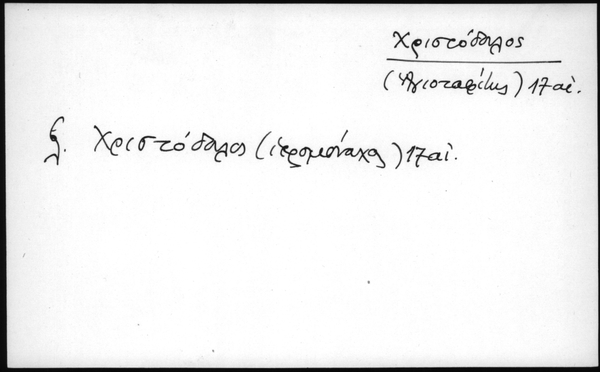 Χριστόδουλος
(Ἁγιοταφίτης) 17 αἰ.
βλ. Χριστόδουλος (ἱερομόναχος) 17 αἰ.